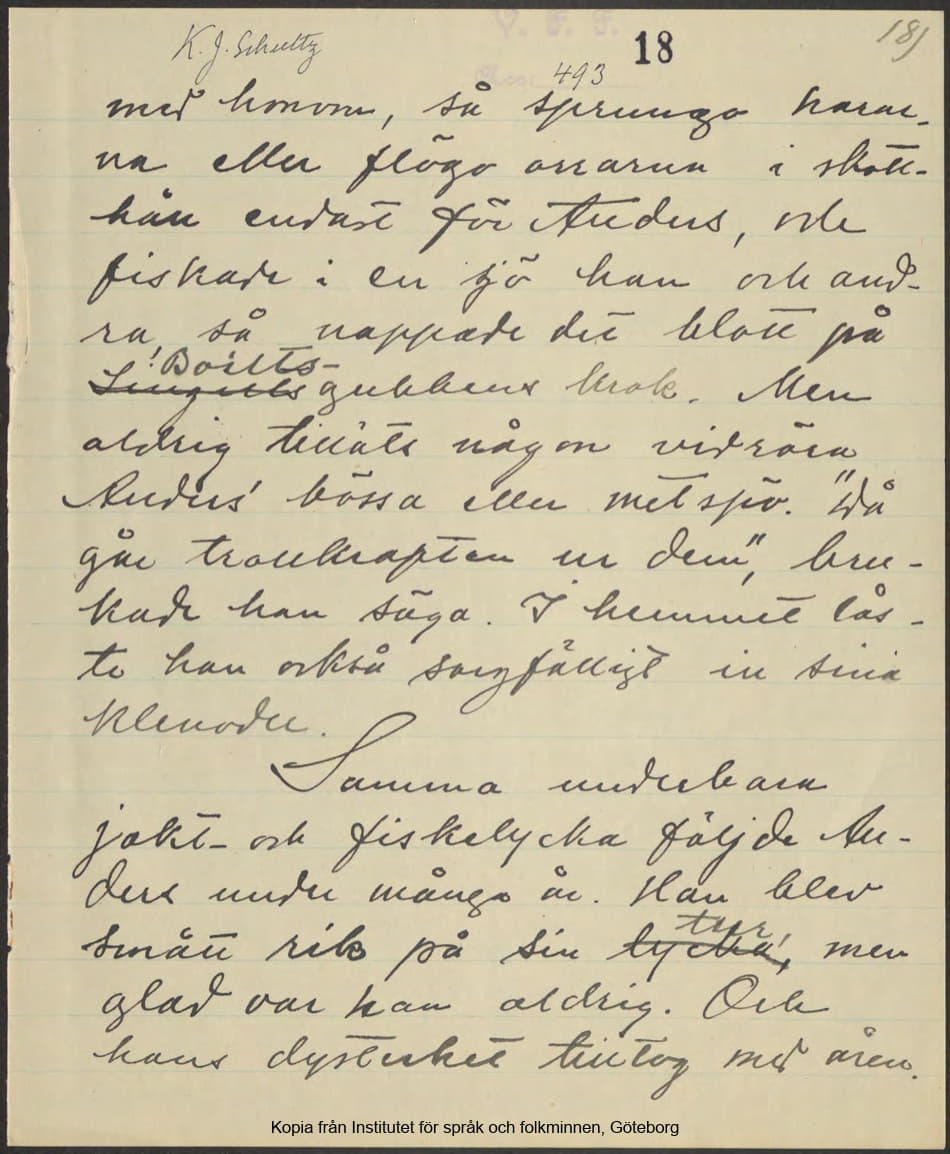 K. J. Schultz
V. F. F.
18
18)
493
med honom, så sprungo harar-
na eller flögo orrarna i skott-
håll endast för Anders, och
fiskade i en sjö han och and-
ra, så nappade det blott på
gubbens krok. Men
aldrig tilläts någon vidröra
Anders' bössa eller metspö. "Då
går trollkraften ur dem", bru-
kade han säga. I hemmet lås-
te han också sorgfälligt in sina
klenoder.
Samma underbara
jakt- och fiskelycka följde An-
ders under många år. Han blev
smått rik på sin lycka, tur, men
glad var han aldrig. Och
hans dysterhet tilltog med åren.
Kopia från Institutet för språk och folkminnen, Göteborg